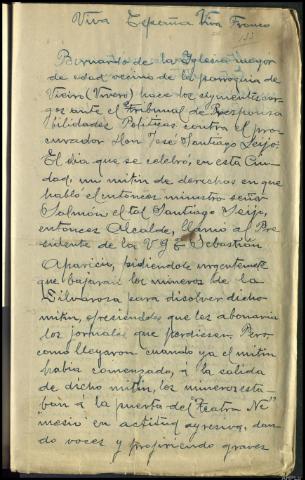 Viva España Viva Franco
Bernardo de la Iglesia mayor
de edad vecino de la parroquia de
Vieiro (Vivero) hace los siguientes car-
gos ante el Tribunal de Responsa
bilidades Politicas contra el pro-
curador Don José Santiago Seijo.
El dia que se celebró, en esta Ciu-
dad, un mitin de derechas en que
habló el entonces ministro señor
Salmón el tal Santiago Seijo,
entonces Alcalde, llamó al Pre-
sidente de la UGT Sebastian
Aparicio, pidiendole urgentemente
que bajaran los mineros de la
Silvarosa para disolver dicho
mitin, ofreciendoles que les abonaria
los jornales que perdiesen. Pero
como llegaron cuando ya el mitin
habia comenzado, a la salida
de dicho mitin, los mineros esta-
ban a la puerta del "Teatro Ne"
mesio en actitud agresiva, dan-
do voces y profiriendo graves